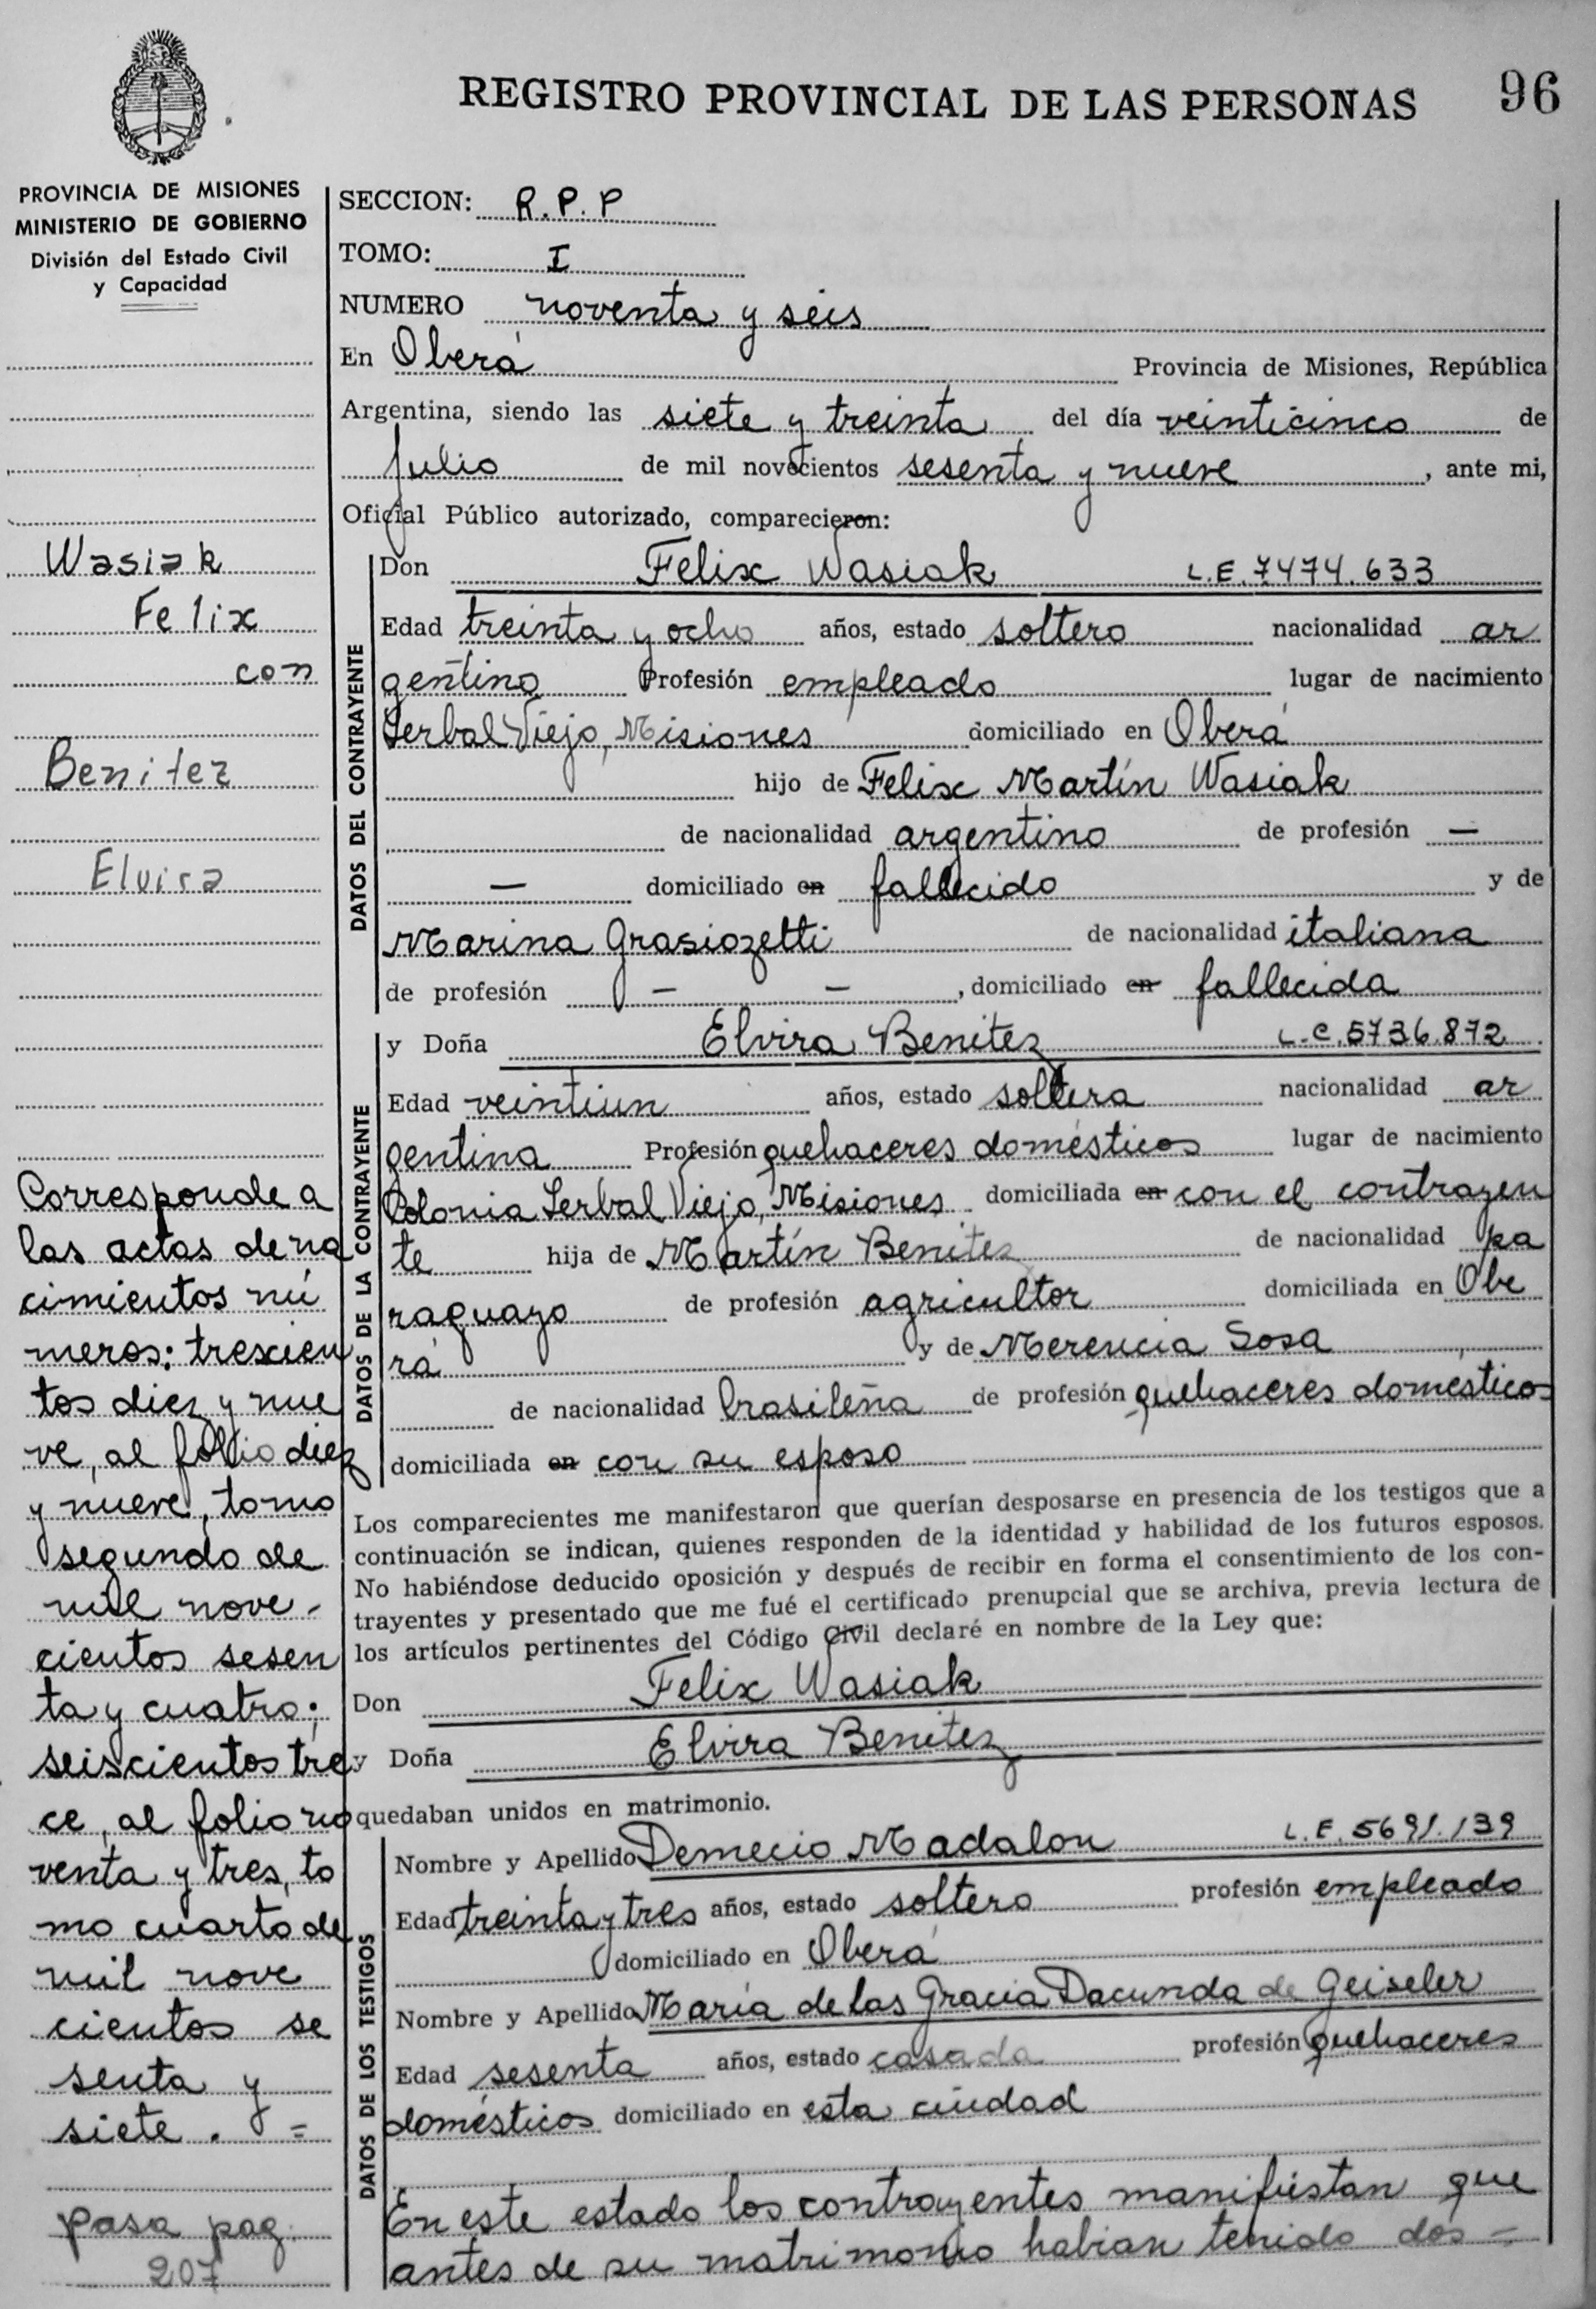 REGISTRO PROVINCIAL DE LAS PERSONAS 96
PROVINCIA DE MISIONES
MINISTERIO DE GOBIERNO
División del Estado Civil
y Capacidad
Wasiak
Felix
con
Benitez
Elvira
Corresponde a
las actas de na
cimientos nú
meros: trescien
tos diez y nue
ve, al folio diez
y nueve, tomo
segundo de
mil nove-
cientos sesen
ta y cuatro;
seiscientos tre
ce, al folio no
venta y tres, to
mo cuarto de
mil nove
cientos se
senta y
siete. =
pasa pag.
207
SECCION: R.P.P
TOMO: I
NUMERO noventa y seis
En Oberá Provincia de Misiones, República
Argentina, siendo las siete y treinta del día veinticinco de
Julio de mil novecientos sesenta y nueve, ante mi,
Oficial Público autorizado, comparecieron:
DATOS DEL CONTRAYENTE
Don Felix Wasiak L.E. 7474.633
Edad treinta y ocho años, estado soltero nacionalidad ar
gentino Profesión empleado lugar de nacimiento
Yerbal Viejo, Misiones domiciliado en Oberá
hijo de Felix Martín Wasiak
de nacionalidad argentino de profesión —
— domiciliado en fallecido y de
Marina Grasiozetti de nacionalidad italiana
de profesión — —, domiciliado en fallecida
DATOS DE LA CONTRAYENTE
y Doña Elvira Benitez L.C. 5736.872
Edad veintiun años, estado soltera nacionalidad ar
gentina Profesión quehaceres domésticos lugar de nacimiento
Colonia Yerbal Viejo, Misiones domiciliada en con el contrayen
te hija de Martín Benitez de nacionalidad pa
raguayo de profesión agricultor domiciliada en Obe
rá y de Merencia Sosa
de nacionalidad brasileña de profesión quehaceres domesticos
domiciliada en con su esposo
Los comparecientes me manifestaron que querían desposarse en presencia de los testigos que a
continuación se indican, quienes responden de la identidad y habilidad de los futuros esposos.
No habiéndose deducido oposición y después de recibir en forma el consentimiento de los con-
trayentes y presentado que me fué el certificado prenupcial que se archiva, previa lectura de
los artículos pertinentes del Código Civil declaré en nombre de la Ley que:
Don Felix Wasiak
y Doña Elvira Benitez
quedaban unidos en matrimonio.
DATOS DE LOS TESTIGOS
Nombre y Apellido Demecio Madalon L.E. 5691.139
Edad treinta y tres años, estado soltero profesión empleado
domiciliado en Oberá
Nombre y Apellido María de las Gracia Dacunda de Geiseler
Edad sesenta años, estado casada profesión quehaceres
domésticos domiciliado en esta ciudad
En este estado los contrayentes manifiestan que
antes de su matrimonio habian tenido dos =